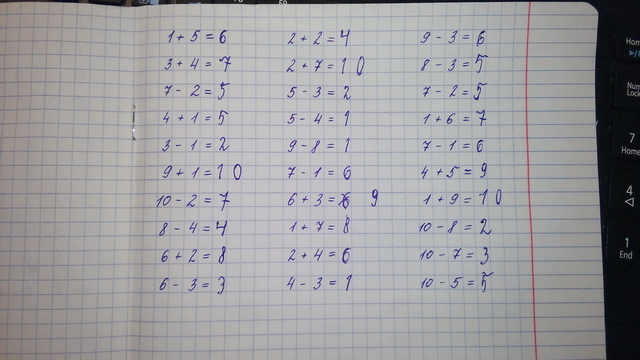 1 + 5 = 6 2 + 2 = 4 9 - 3 = 6
3 + 4 = 7 2 + 7 = 1 0 8 - 3 = 5
7 - 2 = 5 5 - 3 = 2 7 - 2 = 5
4 + 1 = 5 5 - 4 = 1 1 + 6 = 7
3 - 1 = 2 9 - 8 = 1 7 - 1 = 6
9 + 1 = 1 0 7 - 1 = 6 4 + 5 = 9
10 - 2 = 7 6 + 3 = 6 9 1 + 9 = 1 0
8 - 4 = 4 1 + 7 = 8 10 - 8 = 2
6 + 2 = 8 2 + 4 = 6 10 - 7 = 3
6 - 3 = 3 4 - 3 = 1 10 - 5 = 5
Num
Lock
7
Home
4
1
End